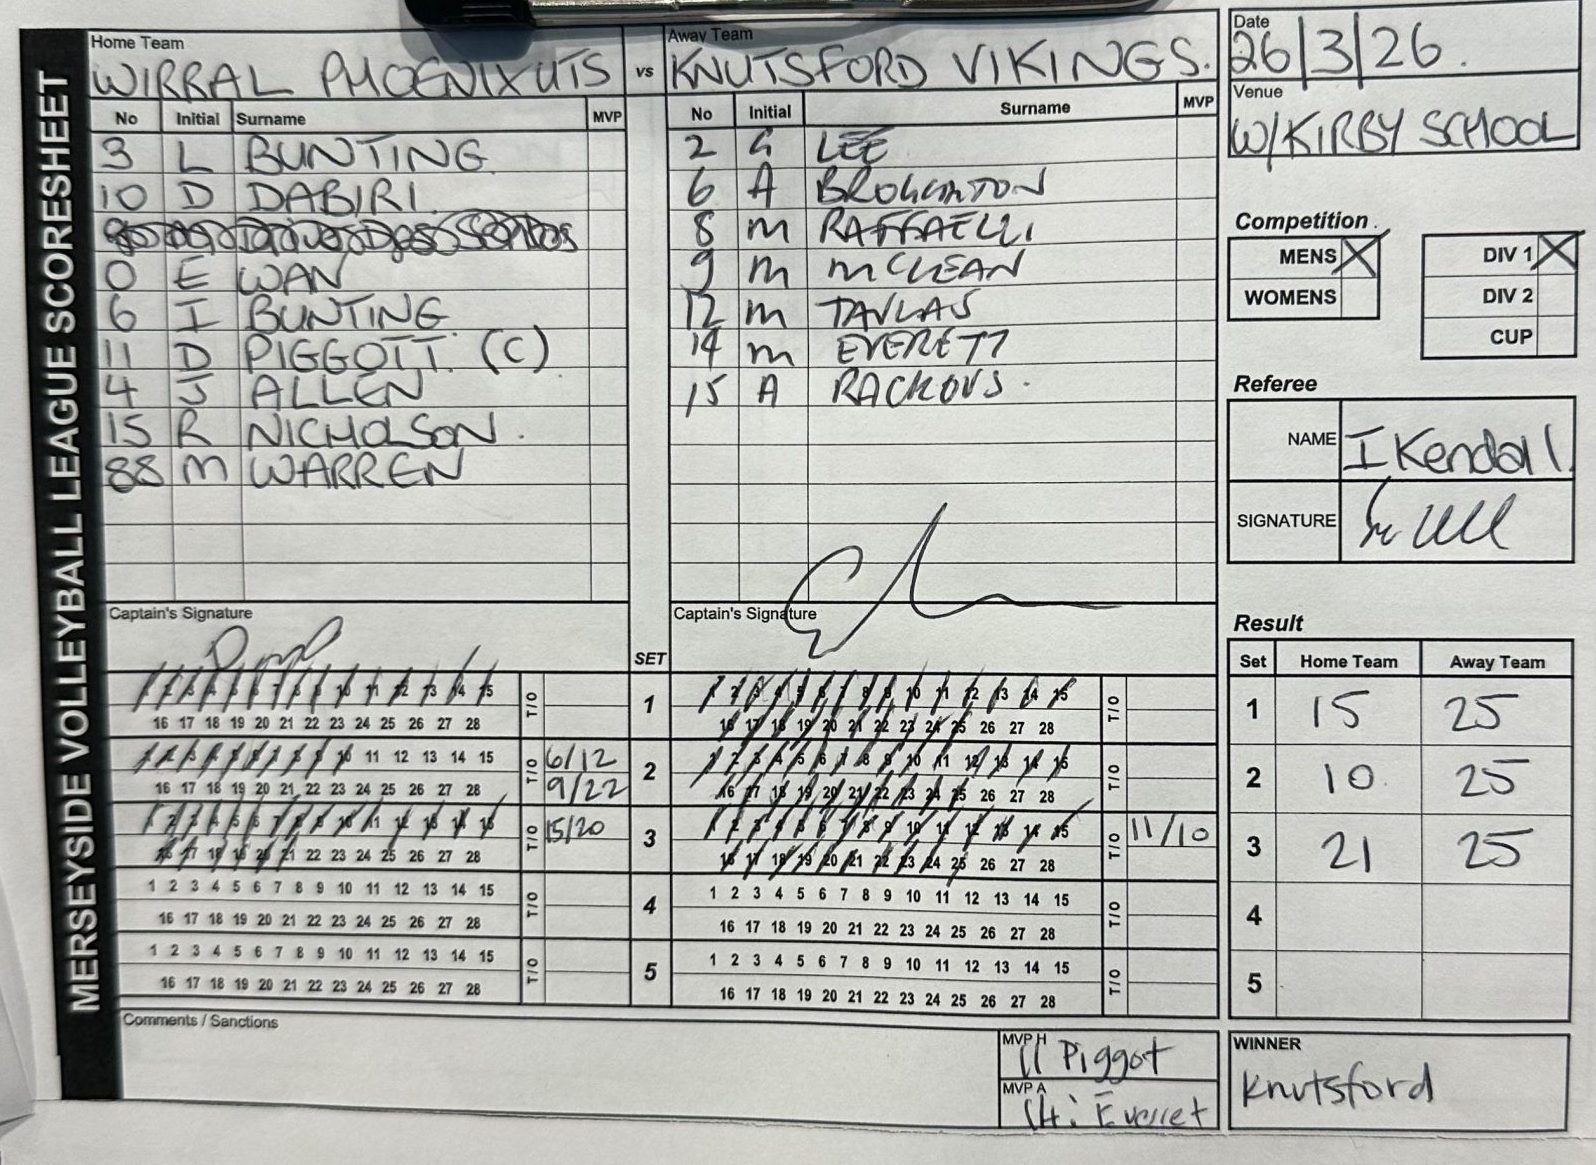 MERSEYSIDE VOLLEYBALL LEAGUE SCORESHEET
Home Team
WIRRAL PHOENIX UTS
vs
Away Team
KNUTSFORD VIKINGS.
No Initial Surname MVP
3 L BUNTING
10 D DABIRI
0 E WAN
6 I BUNTING
11 D PIGGOTT. (C)
4 J ALLEN
15 R NICHOLSON.
88 M WARREN
No Initial Surname MVP
2 G LEE
6 A BROUGHTON
8 M RAFFAELLI
9 M MCLEAN
12 M TAVLAS
14 M EVERETT
15 A RACKOVS.
Captain's Signature
Captain's Signature
SET
1 2 3 4 5 6 7 8 9 10 11 12 13 14 15 T/O 1 1 2 3 4 5 6 7 8 9 10 11 12 13 14 15 T/O
16 17 18 19 20 21 22 23 24 25 26 27 28 16 17 18 19 20 21 22 23 24 25 26 27 28
1 2 3 4 5 6 7 8 9 10 11 12 13 14 15 T/O 6/12 2 1 2 3 4 5 6 7 8 9 10 11 12 13 14 15 T/O
16 17 18 19 20 21 22 23 24 25 26 27 28 9/22 16 17 18 19 20 21 22 23 24 25 26 27 28
1 2 3 4 5 6 7 8 9 10 11 12 13 14 15 T/O 15/20 3 1 2 3 4 5 6 7 8 9 10 11 12 13 14 15 T/O 11/10
16 17 18 19 20 21 22 23 24 25 26 27 28 16 17 18 19 20 21 22 23 24 25 26 27 28
1 2 3 4 5 6 7 8 9 10 11 12 13 14 15 T/O 4 1 2 3 4 5 6 7 8 9 10 11 12 13 14 15 T/O
16 17 18 19 20 21 22 23 24 25 26 27 28 16 17 18 19 20 21 22 23 24 25 26 27 28
1 2 3 4 5 6 7 8 9 10 11 12 13 14 15 T/O 5 1 2 3 4 5 6 7 8 9 10 11 12 13 14 15 T/O
16 17 18 19 20 21 22 23 24 25 26 27 28 16 17 18 19 20 21 22 23 24 25 26 27 28
Comments / Sanctions
MVP H
11 Piggot
MVP A
14: Everret
Date
26/3/26.
Venue
W/KIRBY SCHOOL
Competition
MENS X
WOMENS
DIV 1 X
DIV 2
CUP
Referee
NAME I Kendall
SIGNATURE
Result
Set Home Team Away Team
1 15 25
2 10 25
3 21 25
4
5
WINNER
Knutsford